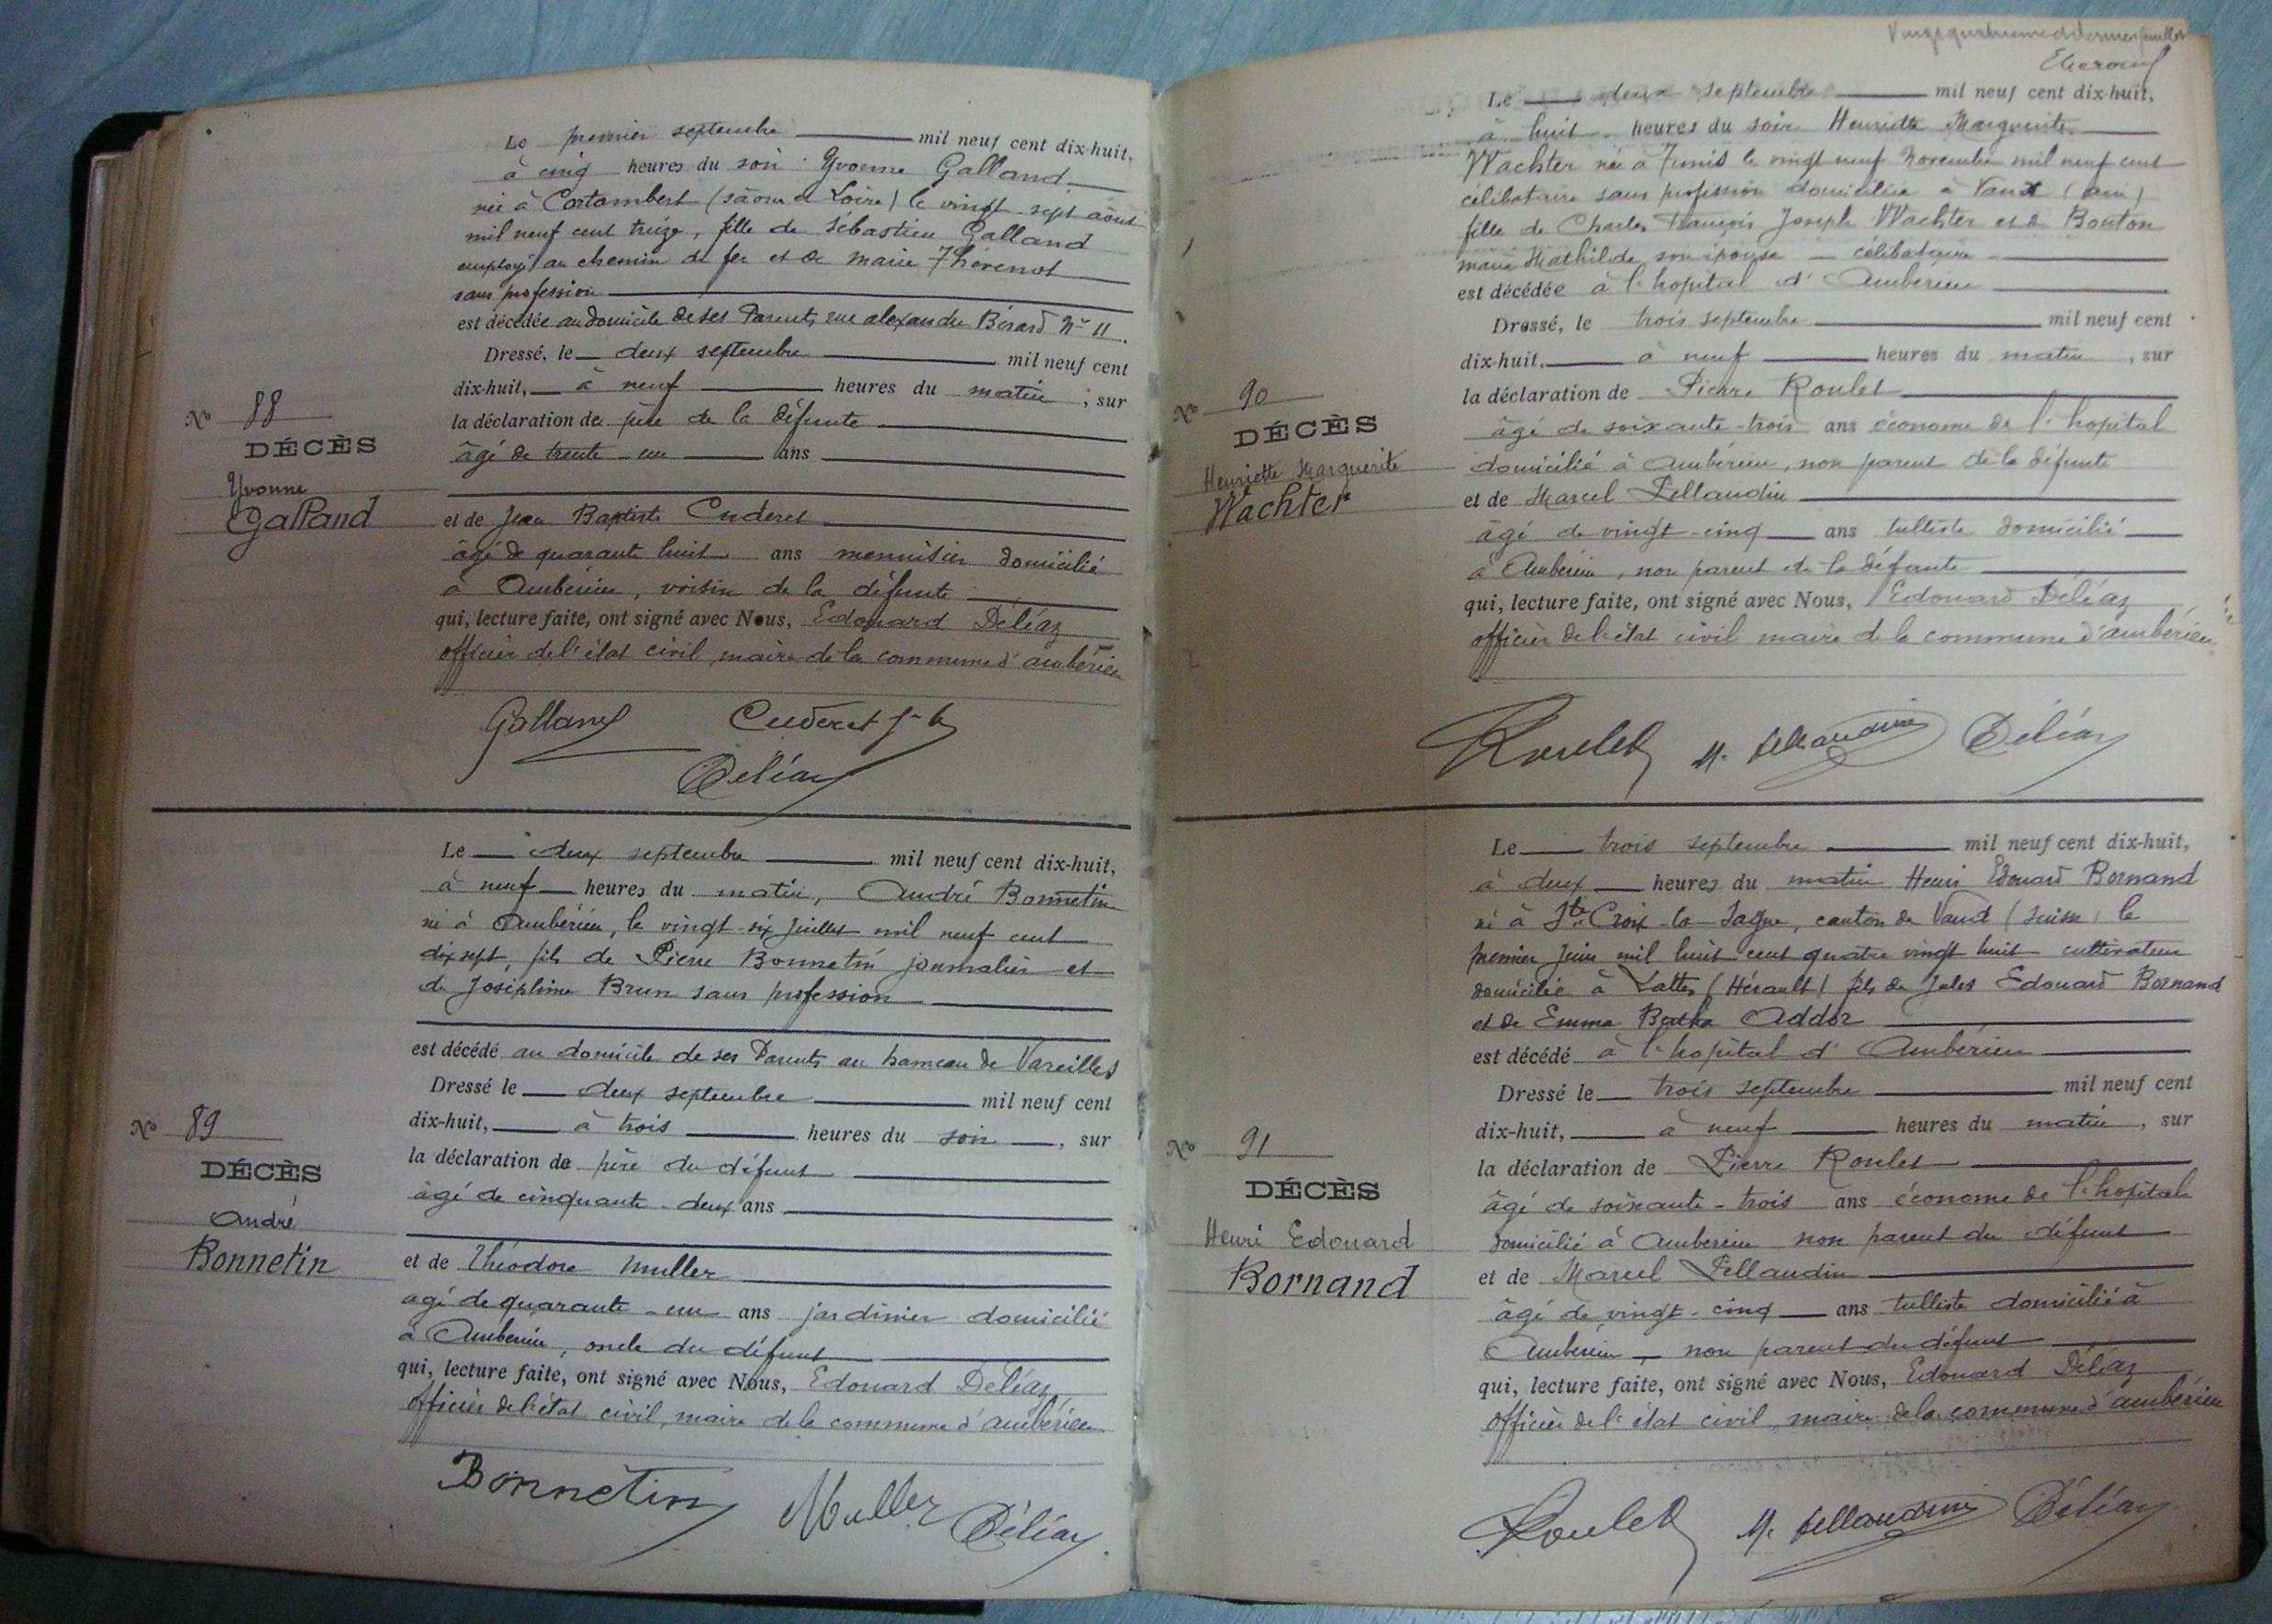 Le premier septembre mil neuf cent dix-huit,
à cinq heures du soir Yvonne Galland
née à Cortambert (Saône et Loire) le vingt-sept août
mil neuf cent treize, fille de Sébastien Galland
employé au chemin de fer et de Marie Thévenot
sans profession
est décédée au domicile de ses Parents, rue alexandre Bérard N° 11.
Dressé, le deux septembre mil neuf cent
dix-huit, à neuf heures du matin, sur
la déclaration de père de la défunte
âgé de trente-un ans
et de Jean Baptiste Cuderet
âgé de quarante huit ans menuisier domicilié
à Ambérieu, voisin de la défunte
qui, lecture faite, ont signé avec Nous, Edouard Déléaz
officier de l'état civil, maire de la commune d'ambérieu
N° 88
DÉCÈS
Yvonne
Galland
Galland Cuderet J-b
Déléaz
Le deux septembre mil neuf cent dix-huit,
à neuf heures du matin, André Bonnetin
né à Ambérieu, le vingt-six juillet mil neuf cent
dix sept, fils de Pierre Bonnetin journalier et
de Joséphine Brun sans profession
est décédé au domicile de ses Parents au hameau de Vareilles
Dressé le deux septembre mil neuf cent
dix-huit, à trois heures du soir, sur
la déclaration de père du défunt
âgé de cinquante-deux ans
et de Théodore Muller
âgé de quarante-un ans jardinier domicilié
à Ambérieu, oncle du défunt
qui, lecture faite, ont signé avec Nous, Edouard Déléaz
officier de l'état civil, maire de la commune d'ambérieu
N° 89
DÉCÈS
André
Bonnetin
Bonnetin Muller Déléaz
Le deux septembre mil neuf cent dix-huit,
à huit heures du soir Henriette Marguerite
Wachter née à Tunis le vingt neuf Novembre mil neuf cent
célibataire sans profession domiciliée à Vaux (ain)
fille de Charles François Joseph Wachter et de Bouton
marie Mathilde son épouse - célibataire
est décédée à l'hopital d'Ambérieu
Dressé, le trois septembre mil neuf cent
dix-huit, à neuf heures du matin, sur
la déclaration de Pierre Roulet
âgé de soixante-trois ans économe de l'hopital
domicilié à Ambérieu, non parent de la défunte
et de Marcel Pellaudin
âgé de vingt-cinq ans tulliste domicilié
à Ambérieu, non parent de la défunte
qui, lecture faite, ont signé avec Nous, Edouard Déléaz
officier de l'état civil maire de la commune d'ambérieu
N° 90
DÉCÈS
Henriette Marguerite
Wachter
Roulet M. Pellaudin Déléaz
Le trois septembre mil neuf cent dix-huit,
à deux heures du matin Henri Edouard Bornand
né à Ste Croix-la Sagne, canton de Vaud (Suisse) le
premier juin mil huit cent quatre vingt huit cultivateur
domicilié à Lattes (Hérault) fils de Jules Edouard Bornand
et de Emma Bertha Addor
est décédé à l'hopital d'Ambérieu
Dressé le trois septembre mil neuf cent
dix-huit, à neuf heures du matin, sur
la déclaration de Pierre Roulet
âgé de soixante-trois ans économe de l'hopital
domicilié à Ambérieu non parent du défunt
et de Marcel Pellaudin
âgé de vingt-cinq ans tulliste domicilié à
Ambérieu - non parent du défunt
qui, lecture faite, ont signé avec Nous, Edouard Déléaz
officier de l'état civil, maire de la commune d'ambérieu
N° 91
DÉCÈS
Henri Edouard
Bornand
Roulet M. Pellaudin Déléaz